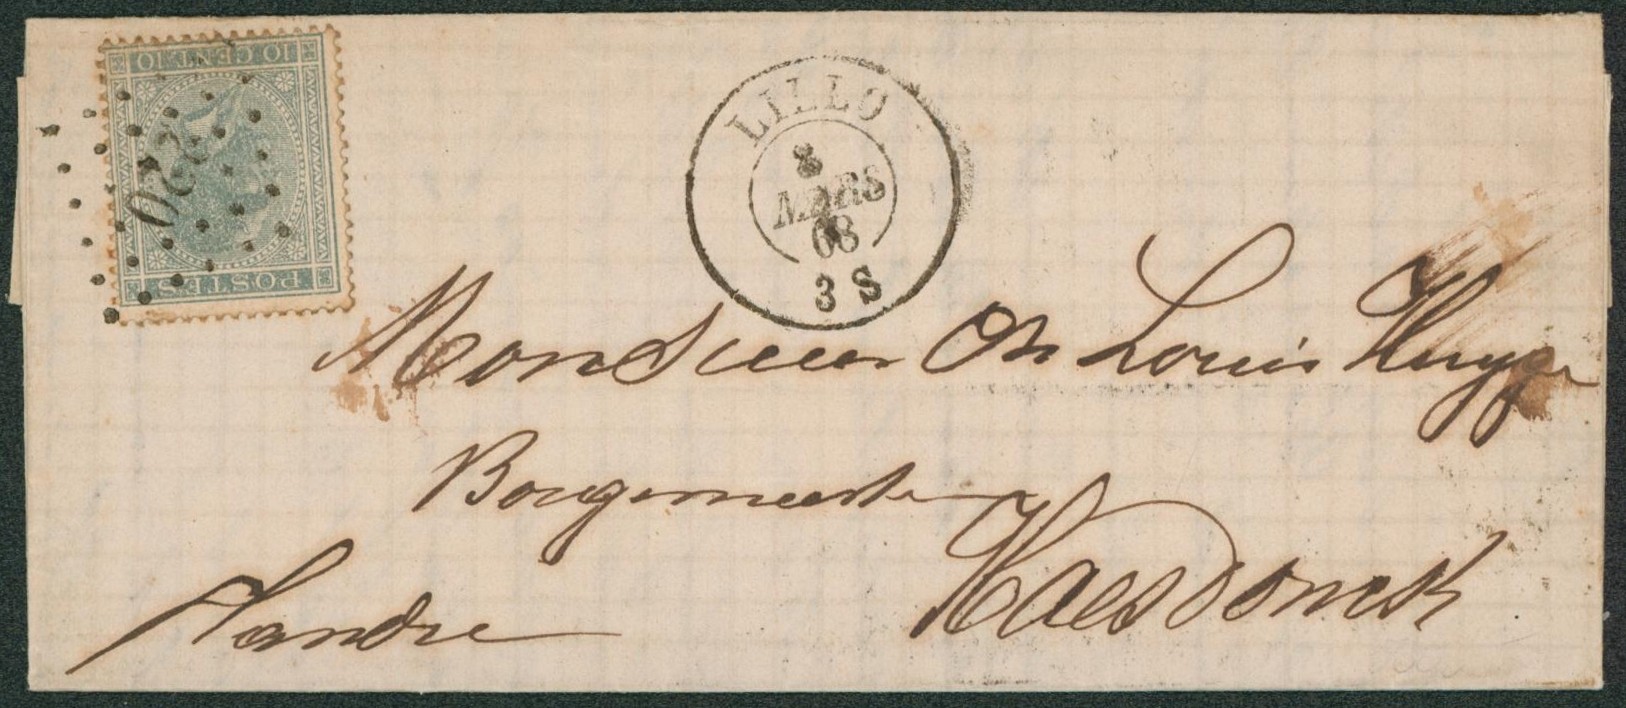 10 CENT. 10
POSTES
220
LILLO
8
MARS
68
3 S
Monsieur Ch Louis Huyge
Borgemeester
Haesdonck
Flandre